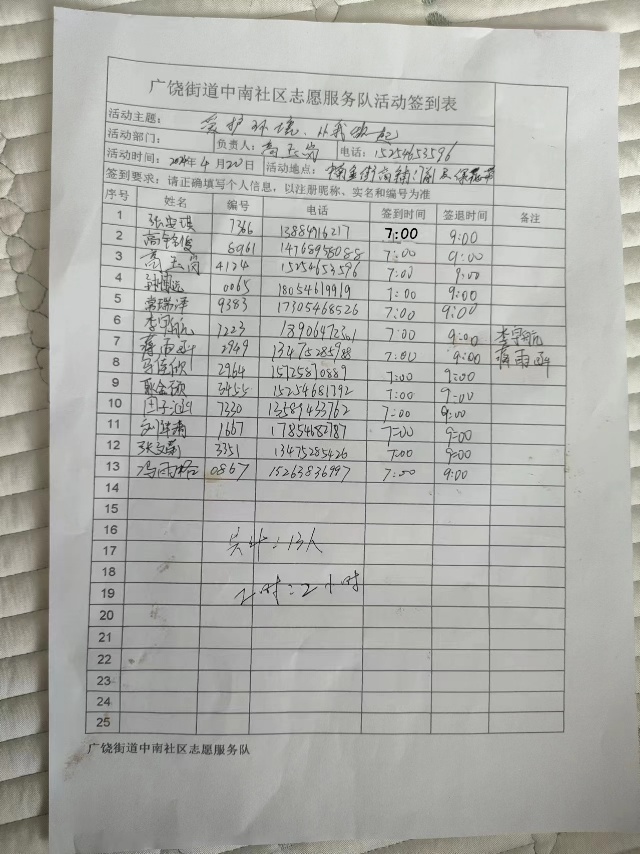 广饶街道中南社区志愿服务队活动签到表
活动主题: 爱护环境、从我做起
活动部门: 负责人: 高玉岗 电话: 15254653596
活动时间: 2024年4月20日 活动地点:
签到要求: 请正确填写个人信息，以注册昵称、实名和编号为准
序号 姓名 编号 电话 签到时间 签退时间 备注
1 张安琪 7366 13884916217 7:00 9:00
2 8961 14768958088 7:00 9:00
3 高玉岗 4124 15254653596 7:00 9:00
4 0065 18054619919 7:00 9:00
5 常瑞泽 9383 17305468526 7:00 9:00
6 李宇航 1223 7:00 9:00 李宇航
7 蒋雨函 2949 13475285988 7:00 9:00 蒋雨函
8 2964 15725870889 7:00 9:00
9 3455 15254681392 7:00 9:00
10 田子涵 7330 13589433762 7:00 9:00
11 1667 17854682787 7:00 9:00
12 3351 13475285426 7:00 9:00
13 冯雨格 0867 15263836997 7:00 9:00
14
15
16
共计:13人
17
18
19 工时:2小时
20
21
22
23
24
25
广饶街道中南社区志愿服务队